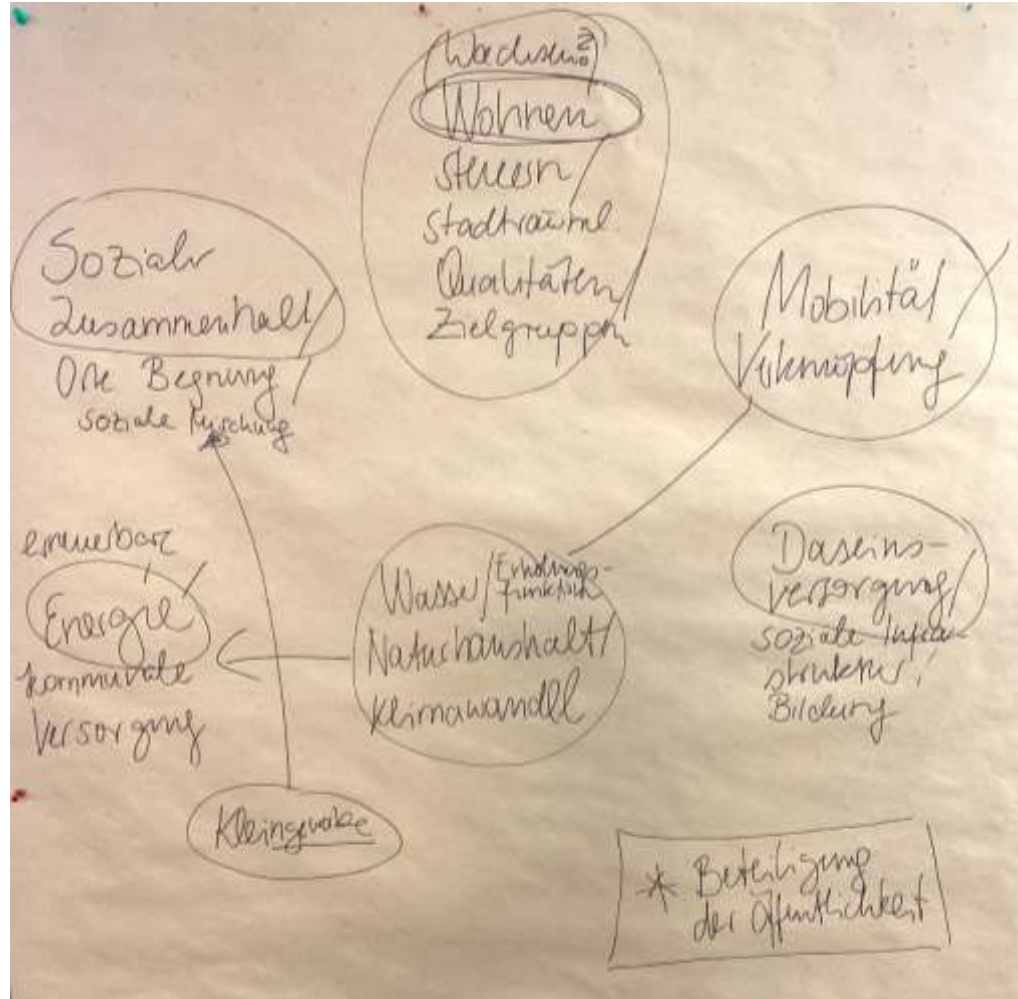 Wachsen?
Wohnen
steuern /
stadträuml.
Qualitäten /
Zielgruppen
Sozialer
Zusammenhalt /
Orte Begnung /
soziale Mischung
Mobilität /
Verknüpfung
erneuerbare
Energie /
kommunale
Versorgung
Wasser / Erholungs-
funktion
Naturhaushalt /
Klimawandel
Daseins-
versorgung /
soziale Infra-
struktur /
Bildung
Kleingewerbe
* Beteiligung
der Öffentlichkeit